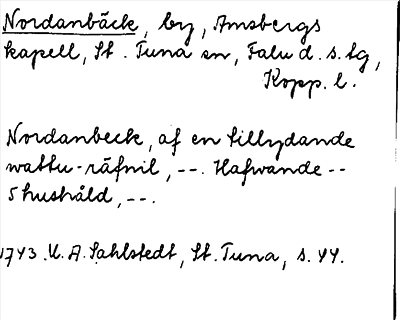 Nordanbäck, by, Amsbergs
kapell, St. Tuna sn, Falu d. s. tg,
Kopp. l.
Nordanbeck, af en tillydande
wattu-räfnil, --. Hafwande --
5 hushåld, --.
1743. U. A. Sahlstedt, St. Tuna, s. 44.